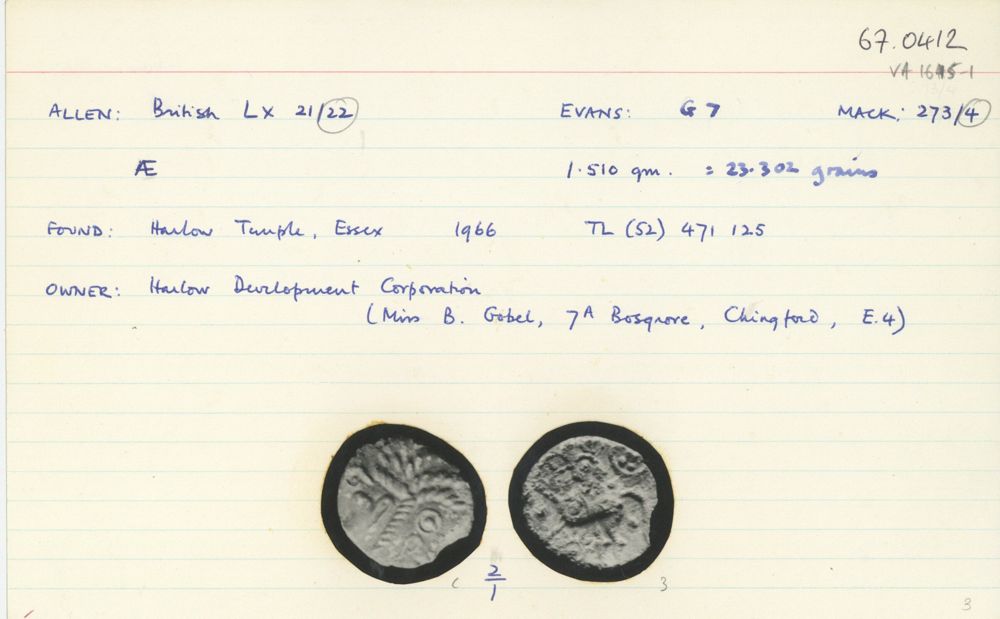 67.0412
ALLEN: British Lx 21/22 EVANS: G 7 MACK: 273/4
Æ 1.510 gm. = 23.302 grains
FOUND: Harlow Temple, Essex 1966 TL (52) 471 125
OWNER: Harlow Development Corporation
(Miss B. Gobel, 7A Bosgrove, Chingford, E.4)
2
1
3
3